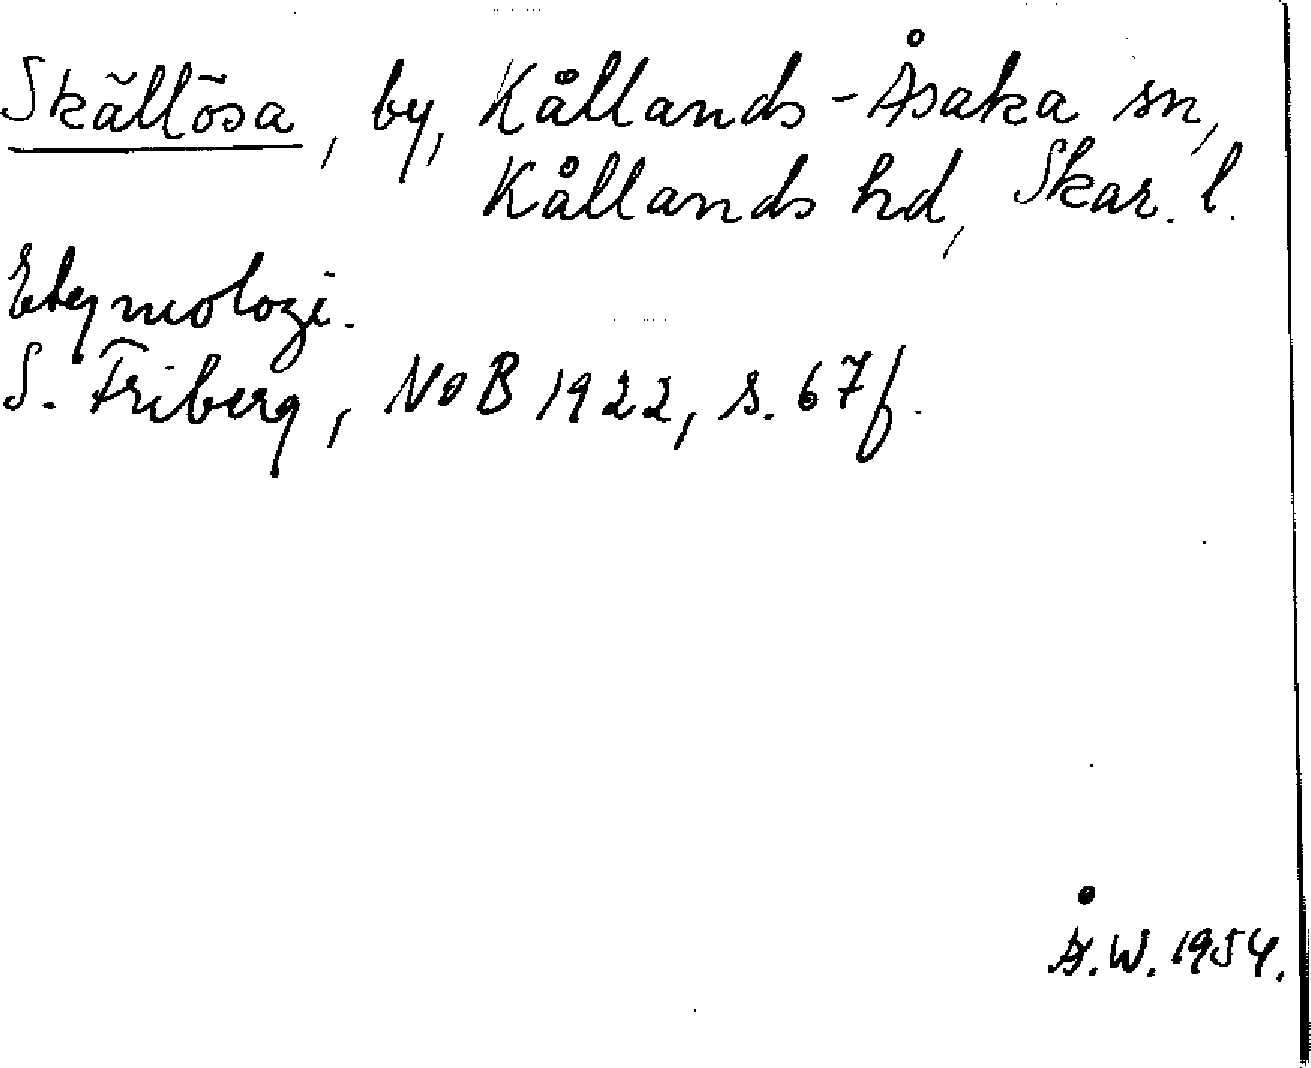 Skällösa, by, Kållands-Åsaka sn,
Kållands hd, Skar. l.
Etymologi.
S. Friberg, NoB 1922, s. 67f.
Å.W. 1954.